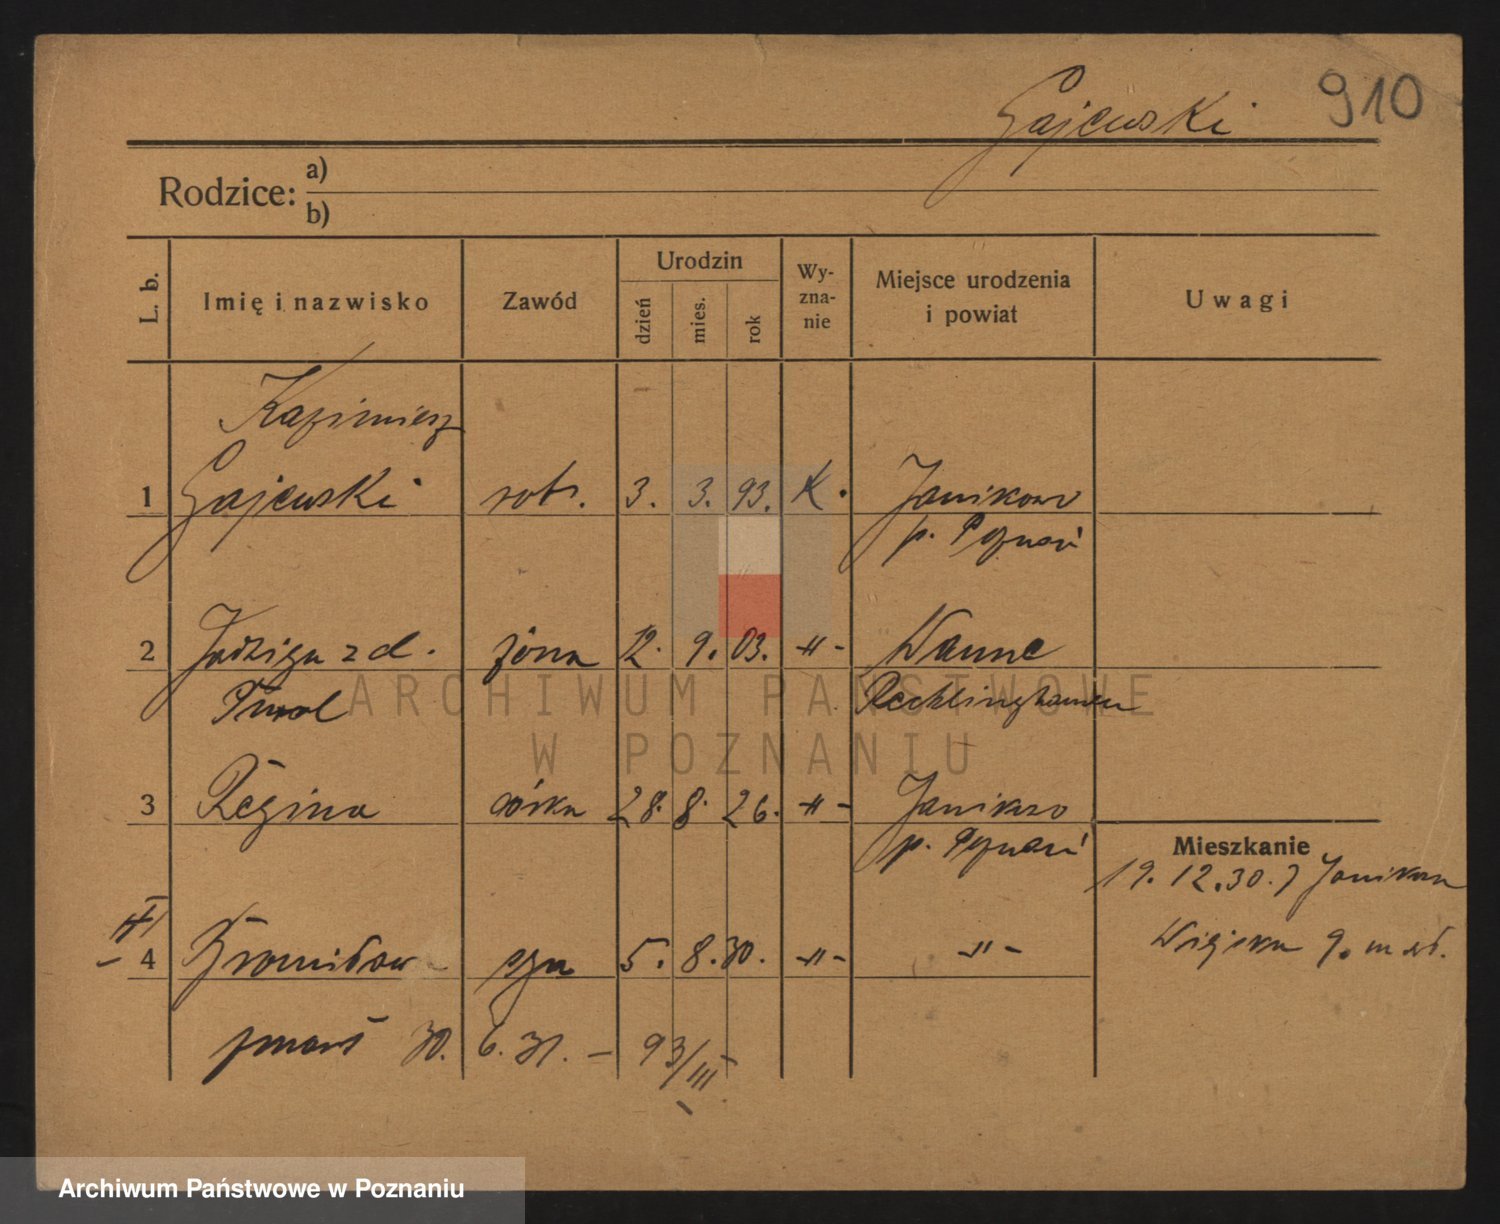 Gajewski 910
Rodzice: a)
b)
L. b. Imię i nazwisko Zawód Urodzin dzień mies. rok Wy-zna-nie Miejsce urodzenia i powiat Uwagi
Kazimierz
1 Gajewski rob. 3. 3. 93. K. Janikowo
p. Poznań
2 Jadwiga z d. żona 12. 9. 03. -"- Wanne
Recklinghausen
ARCHIWUM PAŃSTWOWE
W POZNANIU
3 Regina córka 28. 8. 26. -"- Janikowo
p. Poznań
Mieszkanie
19.12.30. z Janikowa
Wiejska 9.
4 Bronisław syn 5. 8. 30. -"- -"-
zmarł 30. 6. 31. – 93/III
Archiwum Państwowe w Poznaniu